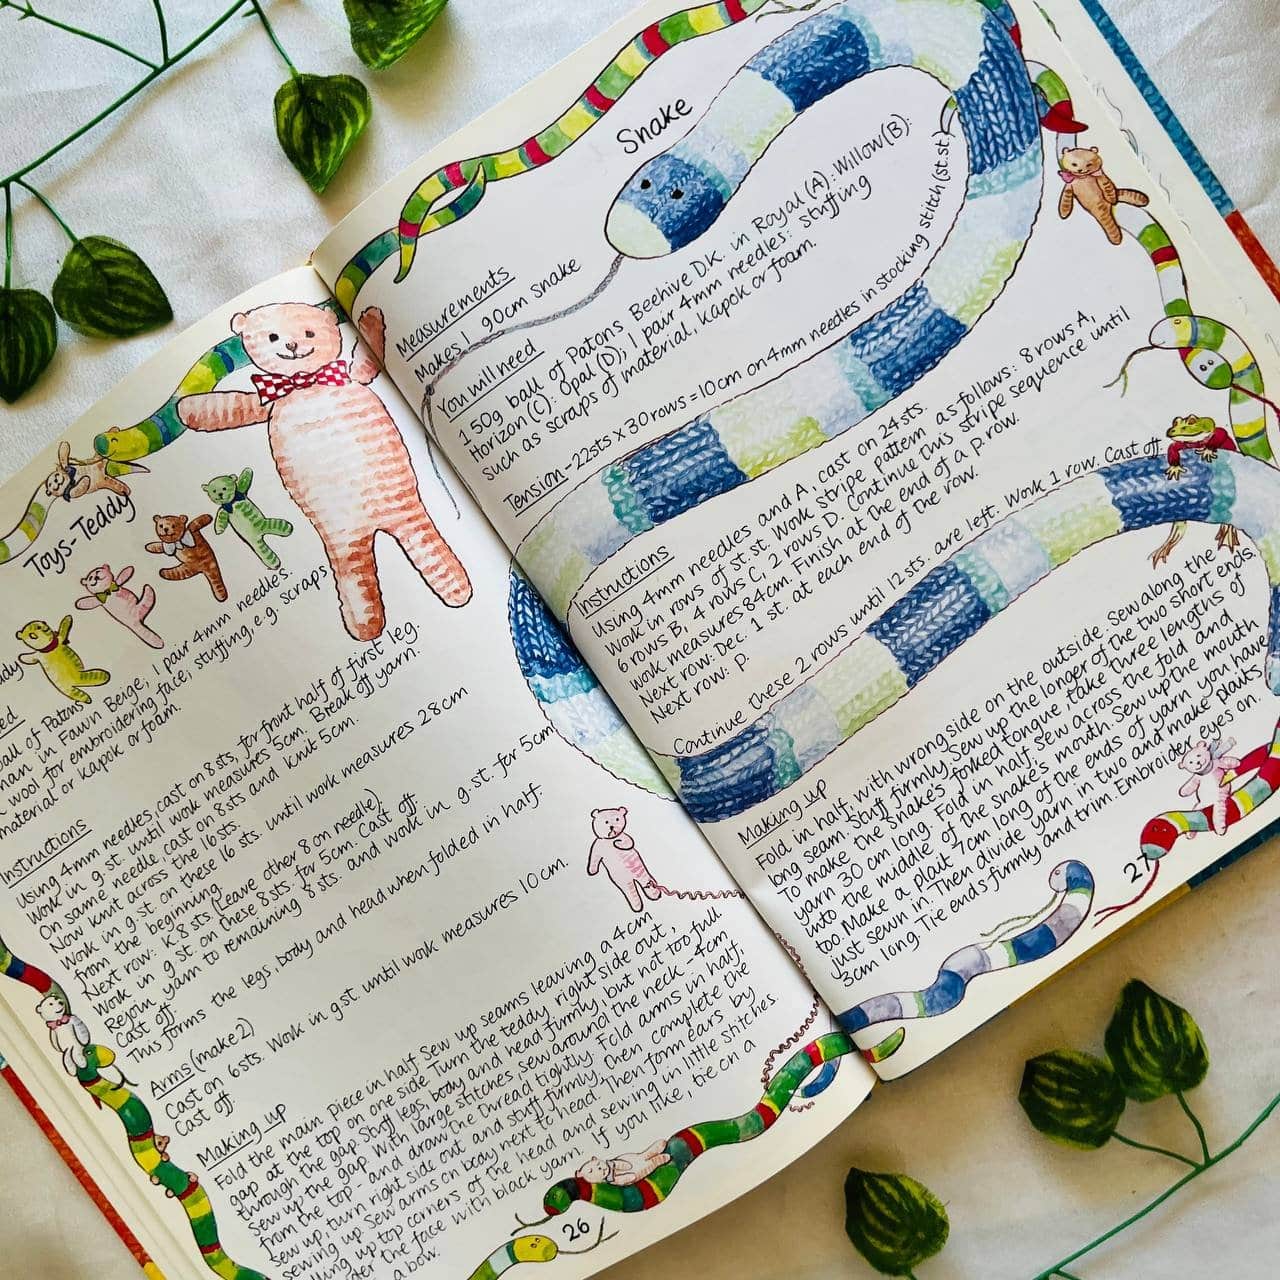 Toys - Teddy
ball of Patons
in Fawn Beige; 1 pair 4mm needles.
wool for embroidering face; stuffing, e.g. scraps
material or kapok or foam.
Instructions
Using 4mm needles, cast on 8 sts, for front half of first leg.
Work in g. st. until work measures 5cm. Break off yarn.
On same needle, cast on 8 sts and knit 5cm.
Now knit across the 16 sts.
Work in g. st. on these 16 sts. until work measures 28cm
from the beginning.
Next row: K. 8 sts (leave other 8 on needle).
Work in g. st. on these 8 sts. for 5cm. Cast off.
Rejoin yarn to remaining 8 sts and work in g. st. for 5cm
Cast off.
This forms the legs, body and head when folded in half.
Arms (make 2)
Cast on 6 sts. Work in g st. until work measures 10cm.
Cast off
Making up
Fold the main piece in half. Sew up seams leaving a 4cm
gap at the top on one side. Turn the teddy right side out,
through the gap. Stuff legs, body and head firmly but not too full.
Sew up the gap. With large stitches sew around the neck - 4cm
from the top - and draw the thread tightly. Fold arms in half,
sew up, turn right side out and stuff firmly, then complete the
sewing up. Sew arms on body next to head. Then form ears by
up top corners of the head and sewing in little stitches.
the face with black yarn. If you like, tie on a
a bow.
26
Snake
Measurements
Makes 1 90cm snake
You will need
1 50g ball of Patons Beehive D.K. in Royal (A): Willow (B):
Horizon (C): Opal (D); 1 pair 4mm needles: stuffing
such as scraps of material, kapok or foam.
Tension - 22 sts x 30 rows = 10cm on 4mm needles in stocking stitch (st.st.)
Instructions
Using 4mm needles and A, cast on 24 sts.
Work in rows of st. st. Work stripe pattern as follows: 8 rows A,
6 rows B, 4 rows C, 2 rows D. Continue this stripe sequence until
work measures 84cm. Finish at the end of a p. row.
Next row: Dec. 1 st. at each end of the row.
Next row: p.
Continue these 2 rows until 12 sts. are left. Work 1 row. Cast off.
Making up
Fold in half, with wrong side on the outside. Sew along the
long seam. Stuff firmly. Sew up the longer of the two short ends.
To make the snake's forked tongue, take three lengths of
yarn 30cm long. Fold in half, sew across the fold and
into the middle of the snake's mouth. Sew up the mouth
too. Make a plait 7cm long of the ends of yarn you have
just sewn in. Then divide yarn in two and make plaits
3cm long. Tie ends firmly and trim. Embroider eyes on.
27